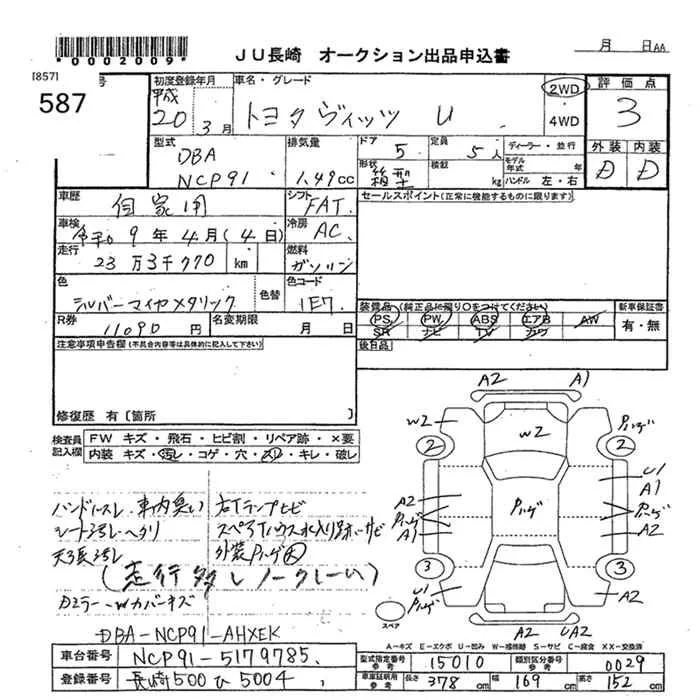 *0002009*
JU長崎 オークション出品申込書
月 日AA
[857]
号
587
初度登録年月
平成
20 3月
車名・グレード
トヨタ ヴィッツ U
2WD
4WD
評価点
3
型式
DBA
NCP91
排気量
1.49cc
ドア
5
定員
5人
ディーラー・並行
形状
箱型
積載
kg
モデル年式
年
ハンドル 左・右
外装 内装
D D
車歴
自家用
シフト
FAT.
セールスポイント(正常に機能するものに限ります)
車検
令和 9年 4月(4日)
冷房
AC
走行
23万3千770 km
燃料
ガソリン
色
シルバーマイカメタリック
色替
色コード
1E7
装備品(純正品に限り○をつけてください)
PS PW ABS エアB AW
SR ナビ TV カワ
新車保証書
有・無
R券
11090円
名変期限
月 日
後日品
注意事項申告欄(不具合内容等は具体的に記入して下さい)
修復歴 有〔箇所 〕
検査員記入欄
FW キズ・飛石・ヒビ割・リペア跡・×要
内装 キズ・汚れ・コゲ・穴・スリ・キレ・破レ
ハンドルスレ 車内臭い 右Tランプヒビ
シート汚レ・ヘタリ
天張汚レ 外装ハゲ大
(走行多しノークレーム)
カラーNカバーキズ
DBA-NCP91-AHXEK
A2 A1
W2 ハゲ
2 W2 2
U1
A1
A2 ハゲ ハゲ
ハゲ A2
A1
3 3
U1
ハゲ A2
スペア
A2 UA2
A-キズ E-エクボ U-凹み W-補修跡 S-サビ C-腐食 XX-交換済
車台番号 NCP91-5179785
型式指定番号参考 15010
類別区分番号参考 0029
登録番号 長崎500ひ5004
車庫証明用参考 長さ 378cm 幅 169cm 高さ 152cm